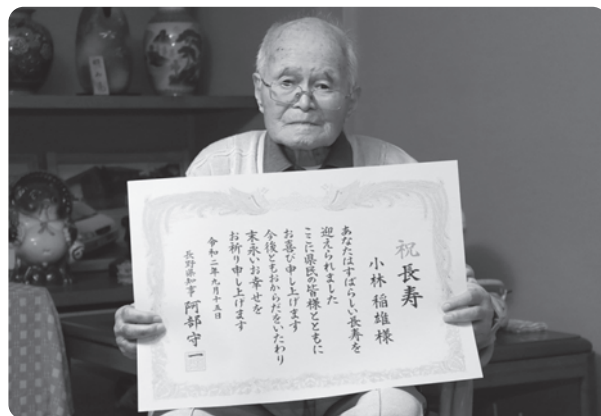 祝長寿
小林稲雄様
あなたはすばらしい長寿を
迎えられました
ここに県民の皆様とともに
お喜び申し上げます
今後ともおからだをいたわり
末永いお幸せを
お祈り申し上げます
令和二年九月十五日
長野県知事 阿部守一